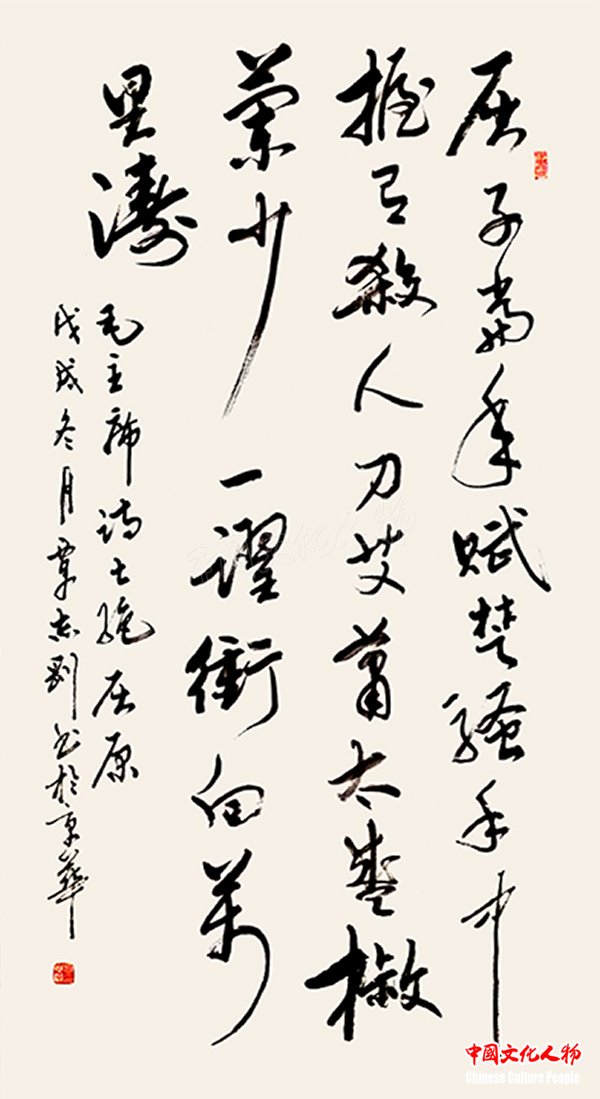 屈子當年賦楚騷手中
握有殺人刀艾蕭太盛椒
蘭少一躍衝向萬
里濤
毛主席詩七絕屈原
戊戌冬月覃志剛书於京華
中国文化人物
中國文化人物
Chinese Culture People